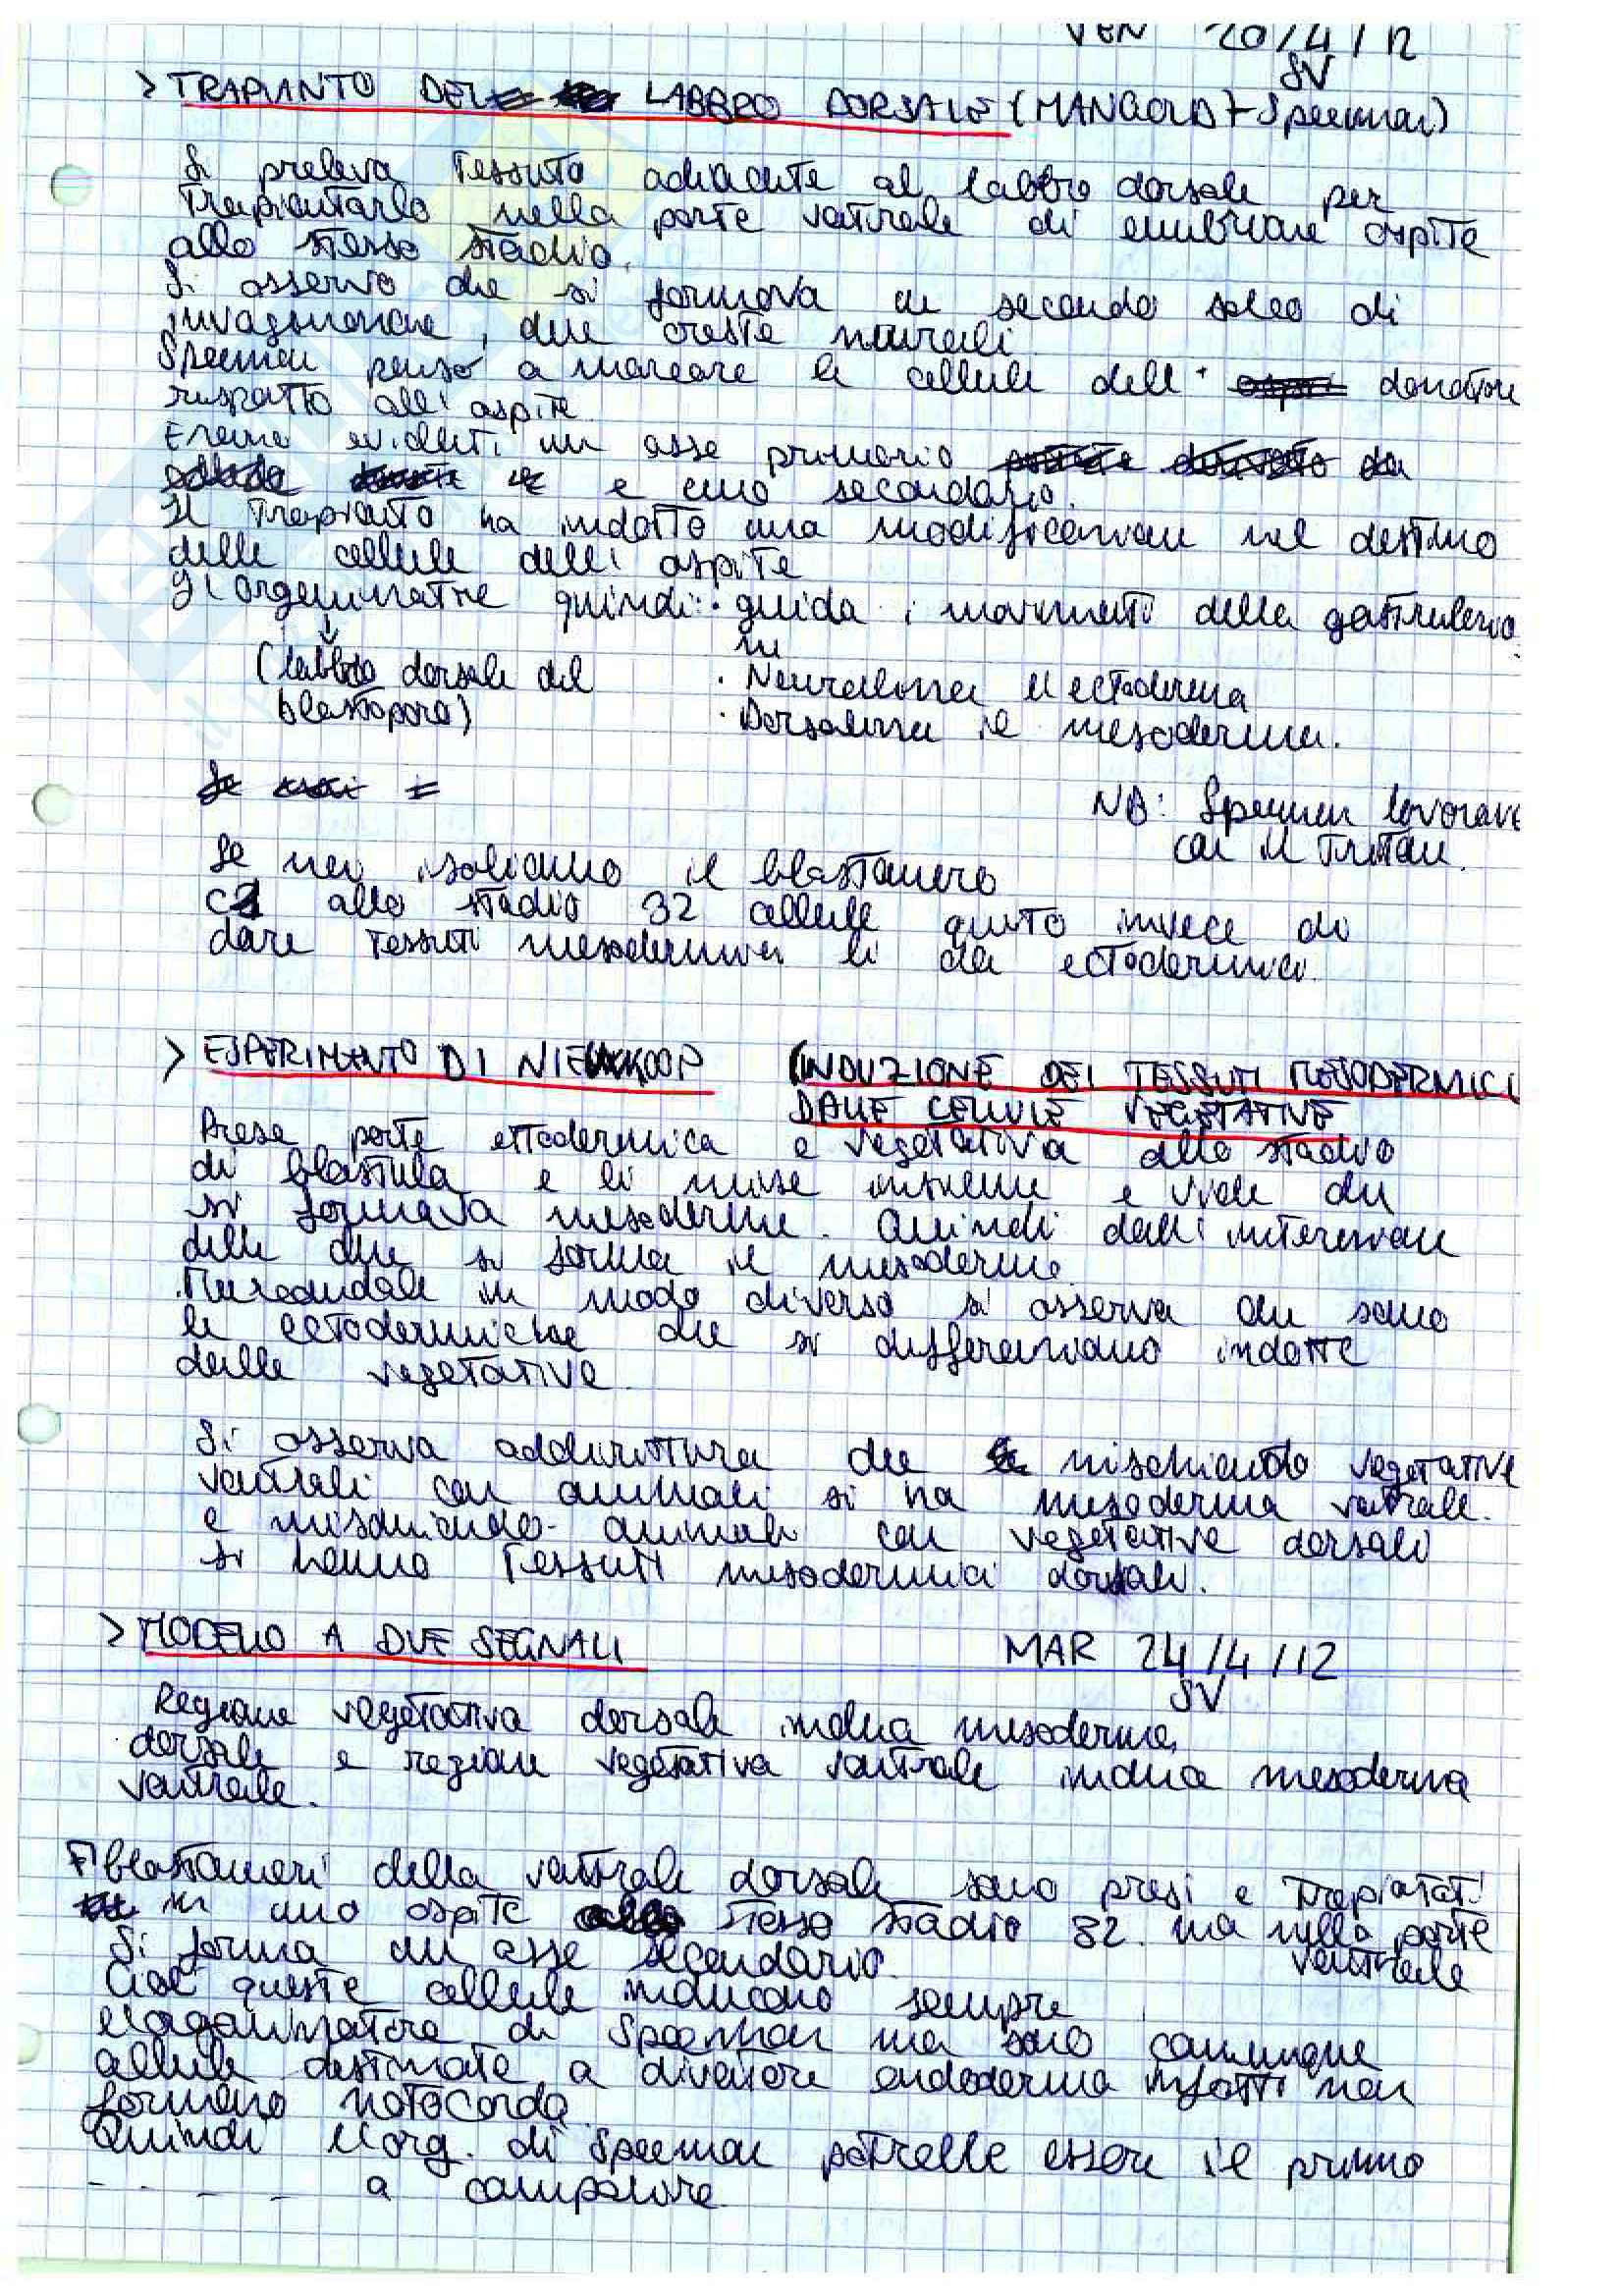 VEN 20/4/12
SV
> TRAPIANTO DEL LABBRO DORSALE (MANGOLD + Speeman)
Si preleva tessuto adiacente al labbro dorsale per
trapiantarlo nella parte ventrale di embrione ospite
allo stesso stadio.
Si osservò che si formava un secondo solco di
invaginazione, due creste neurali
Speeman pensò a marcare le cellule dell' donatore
rispetto all'ospite
Erano evidenti un asse primario
e uno secondario.
Il trapianto ha indotto una modificazione nel destino
delle cellule dell'ospite
L'organizzatore quindi: · guida i movimenti della gastrulazio
ne
(labbro dorsale del
· Neuralizza l'ectoderma
blastoporo)
· Dorsalizza il mesoderma.
NB: Speeman lavorava
con il Tritone.
Se noi isoliamo il blastomero
C1 allo stadio 32 cellule questo invece di
dare tessuti mesodermici li dà ectodermici.
> ESPERIMENTO DI NIEUWKOOP (INDUZIONE DEI TESSUTI MESODERMICI
DALLE CELLULE VEGETATIVE
Prese parte ectodermica e vegetativa allo stadio
di blastula e li mise insieme e vide che
si formava mesoderma. Quindi dall'interazione
delle due si forma il mesoderma.
Marcandole in modo diverso si osserva che sono
le ectodermiche che si differenziano indotte
dalle vegetative.
Si osserva addirittura che mischiando vegetative
ventrali con animali si ha mesoderma ventrale.
e mischiando animali con vegetative dorsali
si hanno tessuti mesodermici dorsali.
> MODELLO A DUE SEGNALI MAR 24/4/12
SV
Regione vegetativa dorsale induce mesoderma
dorsale e regione vegetativa ventrale induce mesoderma
ventrale.
blastomeri della ventrale dorsale sono presi e trapiantati
in uno ospite stesso stadio 32 ma nella parte
ventrale
Si forma un asse secondario.
Cioè queste cellule inducono sempre
l'organizzatore di Speeman ma sono comunque
cellule destinate a divenire endoderma infatti non
formano notocorda.
Quindi l'org. di Speeman potrebbe essere il primo
- - - - - a comparire